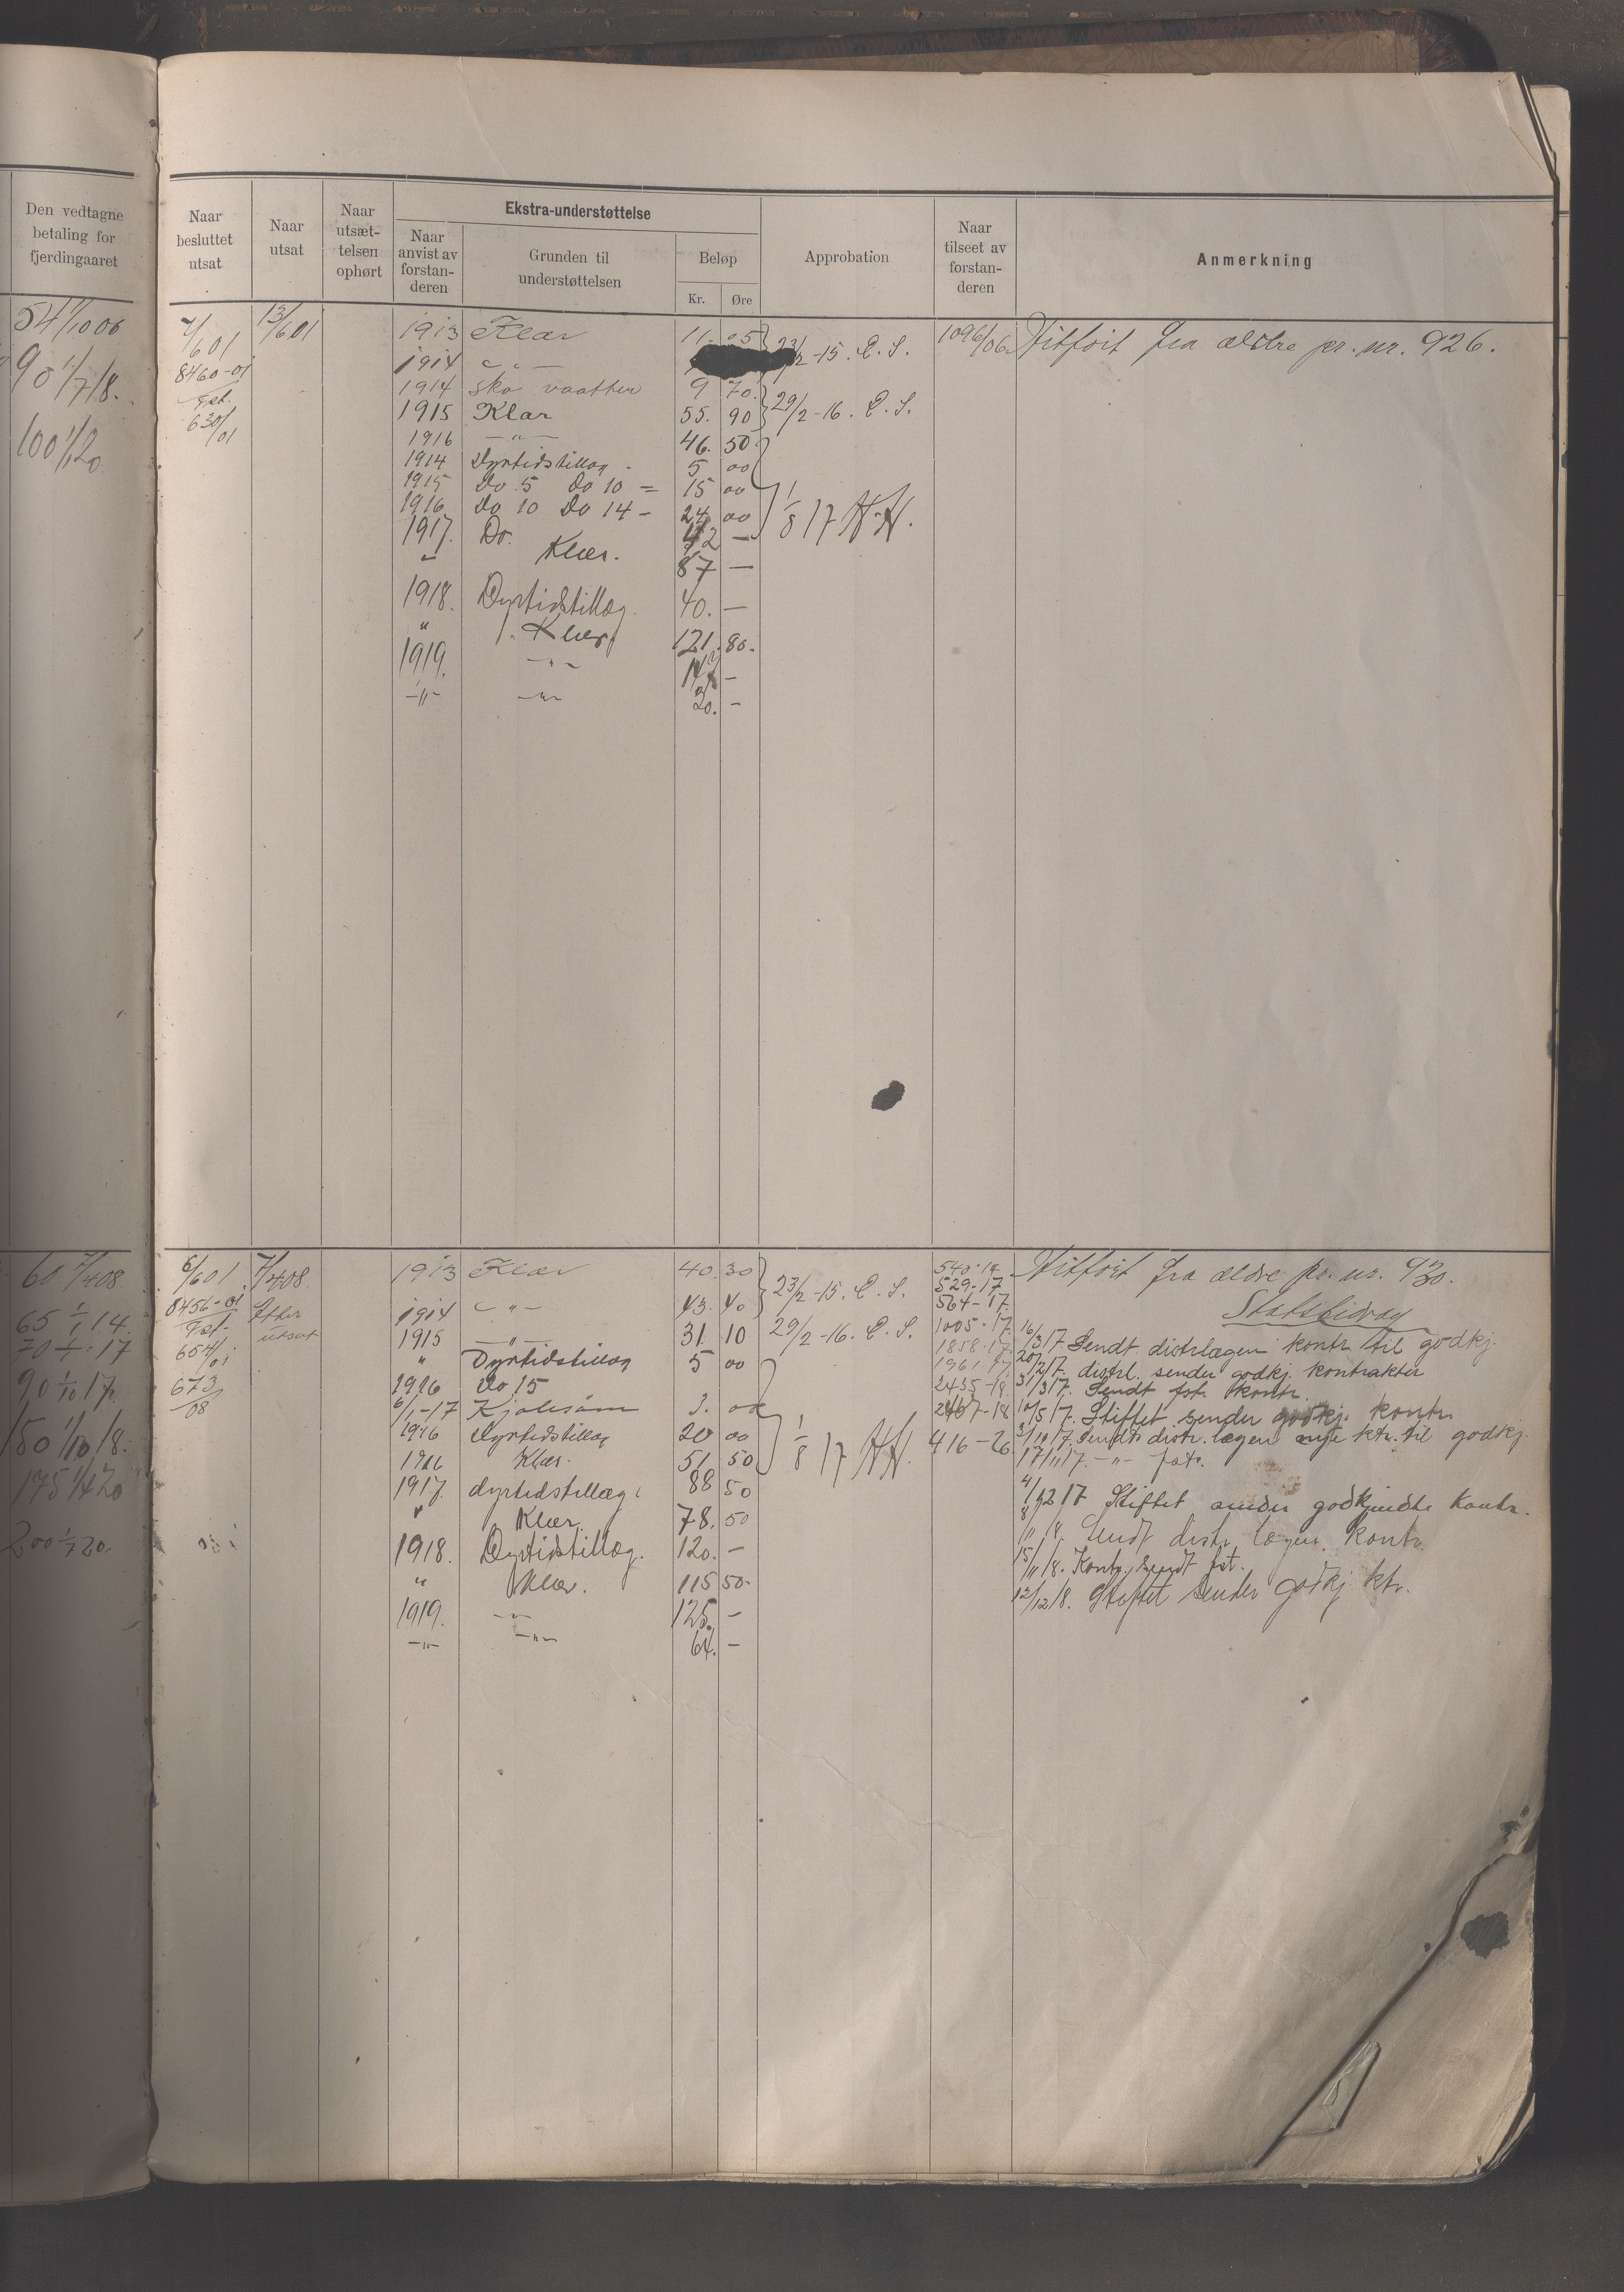 Den vedtagne
betaling for
fjerdingaaret
Naar
besluttet
utsat
Naar
utsat
Naar
utsæt-
telsen
ophørt
Ekstra-understøttelse
Naar
anvist av
forstan-
deren
Grunden til
understøttelsen
Beløp
Kr.
Øre
Approbation
Naar
tilseet av
forstan-
deren
Anmerkning
54 1/10 06
90 1/7 18.
100 1/1 20
7/6 01
8460-01
Fst.
630/01
13/6 01
1913 Klær 11. 05
1914 - " -
23/2-15. E. S.
1914 sko vaatter 9 70.
1915 Klær 55. 90
29/2-16. E. S.
1916 - " - 46. 50
1914 Dyrtidstillæg 5 00
1915 Do 5 Do 10 = 15 00
1916 Do 10 Do 14 - 24 00
1/8 17 H.H.
1917. Do. 42 -
" Klær. 87 -
1918. Dyrtidstillæg. 40. -
" Klær 121. 80.
1919. - " - -
- " - - " - 20. -
1096/06
Hitført fra ældre pr. nr. 926.
60 7/4 08
65 1/1 14.
70 1/1 17
90 1/10 17.
150 1/10 18.
175 1/1 20
200 1/7 20.
6/6 01
8456-01
Fst.
654/01
673/08
7/4 08.
Atter
utsat
1913 Klær 40. 30
1914 - " - 43. 40
23/2-15. E. S.
1915 - " - 31. 10
29/2-16. E. S.
" Dyrtidstillæg 5 00
1916 Do 15
6/1-17 Kjolesøm 3. 00
1916 Dyrtidstillæg 20 00
1916 Klær. 51. 50
1/8 17 H.H.
1917. dyrtidstillæg 88 50
" Klær 78. 50
1918. Dyrtidstillæg. 120. -
" Klær. 115 50.
1919. - " - 125. -
- " - - " - 64. -
540-14
529-17
564-17.
1005-17.
1858-17.
1961-17
2435-18
2467-18
416-26
Hitført fra ældre pr. nr. 930.
Statsbidrag
16/3 17 Sendt distrlægen kontr. til godkj.
20/2 17. distrl. sender godkj. kontrakter
31/3 17. Sendt fst. kontr.
10/5 17. Stiftet sender godkj. kontr.
3/10 17. Sendt distr. lægen nye ktr. til godkj.
17/11 17. - " - fst.
4/12 17 Stiftet sender godkjendte kontr.
8/11 18. Sendt distr. lægen kontr.
15/11 18. Kontr. sendt fst.
12/12 18. Stiftet sender godkj. ktr.